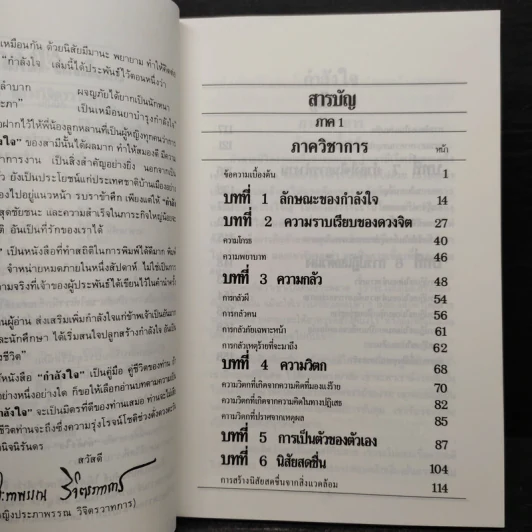 เหมือนกัน ด้วยนิสัยมีมานะ พยายาม ทำให้
"กำลังใจ เล่มนี้ได้ประพันธ์ไว้ตอนหนึ่งว่า
ลำบาก ผจญภัยได้ยากเป็นนักหนา
เป็นเหมือนยาบำรุงกำลังใจ"
ฝากไว้ให้พี่น้องลูกหลานที่เป็นผู้หญิงทุกคน
ของสามีนั้นได้ผลมาก ทำให้สมองดี มีความ
การงาน เป็นสิ่งสำคัญอย่างยิ่ง นอกจาก
ยังเป็นประโยชน์แก่ประเทศชาติบ้านเมืองอย่าง
ไปอยู่แนวหน้า รบราข้าศึก เพียงแต่ให้
สุดชัยชนะ และความสำเร็จในภาระกิจใหญ่น้อย
ดี อันเป็นที่รักของเราได้
เป็นหนังสือที่ทำสถิติในการพิมพ์ได้ดีมาก
จำหน่ายหมดภายในหนึ่งสัปดาห์ ไม่ใช่เป็นการ
ความจริงที่เจ้าของผู้ประพันธ์ได้เขียนไว้ในคำนำครั้ง
ผู้อ่าน ส่งเสริมเพิ่มกำลังใจแก่ข้าพเจ้าเป็นอันมาก
และนักศึกษา ได้เริ่มสนใจปลูกสร้างกำลังใจ
ชีวิต"
หนังสือ "กำลังใจ" เป็นคู่มือ คู่ชีวิตของท่าน
อย่างหนึ่งอย่างใด ก็ขอให้เลือกอ่านบทตามความ
กำลังใจ" จะเป็นมิตรที่ดีของท่านเสมอ
ชีวิตท่านจะถึงซึ่งความรุ่งโรจน์โชติช่วงดังดวง
นิจนิรันดร
สวัสดี
(คุณหญิงประภาพรรณ วิจิตรวาทการ)
สารบัญ
ภาค 1
ภาควิชาการ หน้า
ข้อความเบื้องต้น 1
บทที่ 1 ลักษณะของกำลังใจ 14
บทที่ 2 ความราบเรียบของดวงจิต 27
ความโกรธ 40
ความพยาบาท 46
บทที่ 3 ความกลัว 48
การกลัวผี 54
การกลัวคน 56
การกลัวภัยเฉพาะหน้า 61
การกลัวเหตุร้ายที่จะมาถึง 62
บทที่ 4 ความวิตก 68
ความวิตกที่เกิดจากความคิดที่มองแง่ร้าย 70
ความวิตกที่เกิดจากความคิดในทางปฏิเสธ 82
ความวิตกที่ปราศจากเหตุผล 85
บทที่ 5 การเป็นตัวของตัวเอง 87
บทที่ 6 นิสัยสดชื่น 104
การสร้างนิสัยสดชื่นจากสิ่งแวดล้อม 114